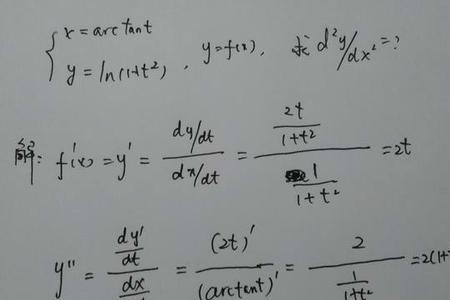 { x = arctant
y = ln(1+t²) , y=f(x), 求 d²y/dx² = ?
解: f'(x) = y' = (dy/dt)/(dx/dt) = (2t/(1+t²))/(1/(1+t²)) = 2t
y'' = (dy'/dt)/(dx/ = (2t)'/(arctant)' = 2/(1/(1+t²)) = 2(1+